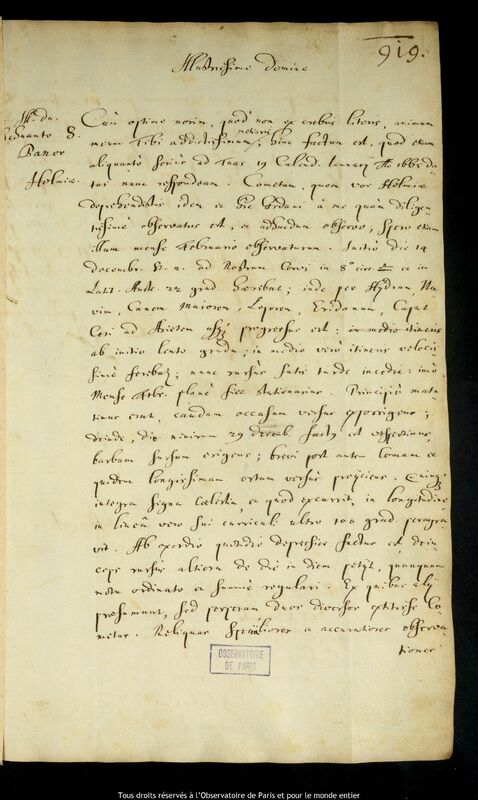 919.
Illustrissime Domine
Ill. Dn.
Schuanto
Baner
Holmiæ.
Cum optime norim, quod non ex crebris literis, animum
meum Tibi addictissimum, metiaris, hinc factum est, quod etiam
aliquanto serius ad Tuas 19 Calend. Ianuarij
nunc respondeam. Cometam, quem vos Holmiæ
deprehendistis idem ac hic Gedani a me quam diligen-
tissimè observatus est, ac adhucdum observo, spero etiam
illum mense Februario observaturum. Initio die 14
Decembr. st. n. ad Rostrum Corvi in 8° circ. ac in
Latit. Austr. 22 grad. hærebat; inde per Hydram, Na-
vim, Canem Maiorem, Leporem, Eridanum, Caput
Ceti ad Arietem usque progressus est: in medio itineris
ab initio lento gradu; in medio verò itineris velocis-
simè ferebatur; nunc rursus satis tardè incedit: imò
Mense Febr. planè fiet stationarius. Principiò matu-
tinus erat, caudam occasum versus exporrigens;
deinde, die nimirum 29 Decemb. factus est vespertinus,
barbam sursum erigens; brevi post autem comam ac
quidem longissimam ortum versus projiciens.
integra signa coelestia, ac quod excurrit, in longitudine
in linea vero sui curriculi ultro 100 grad. peragra-
vit. Ab exordio quotidie depressior factus est dein-
ceps rursus altiora de die in diem petijt, quanquam
motu ordinato ac summè regulari. Ex quibus
præsumunt, sed perperam duos diversos extitisse Co-
metas. Reliquas specialiores ac accuratiores observa-
tiones
OBSERVATOIRE
DE PARIS
Tous droits réservés à l'Observatoire de Paris et pour le monde entier